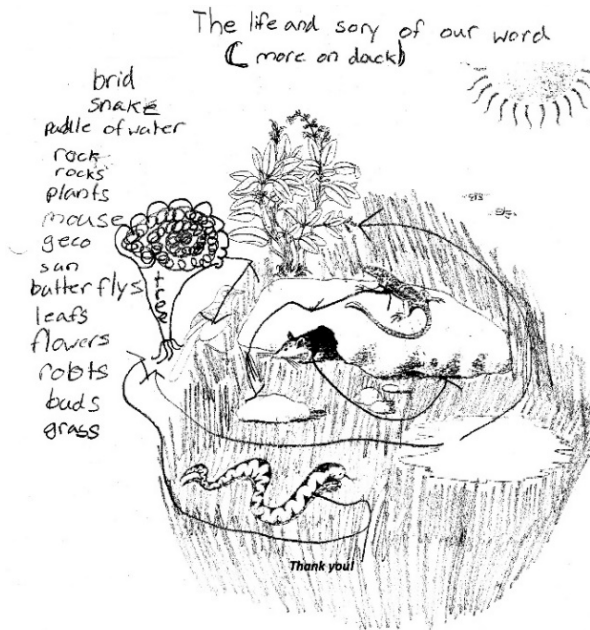 The life and sory of our word
( more on dack)
brid
snake
puddle of water
rock
rocks
plants
mouse
geco
sun
butterflys
leafs
flowers
robts
buds
grass
tree
Thank you!